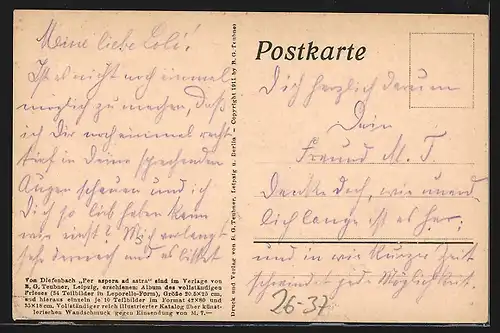 Meine liebe Loli!
Ist es nicht noch einmal
möglich zu machen, daß
ich Dir noch einmal recht
tief in Deine sprechenden
Augen schauen und ich
Dich so lieb haben kann
wie einst? Mich verlangt
sehr danach und es bittet
Von Diefenbach „Per aspera ad astra“ sind im Verlage von
B. G. Teubner, Leipzig, erschienen: Album des vollständigen
Frieses (34 Teilbilder in Leporello-Form), Größe 20,5×25 cm,
und hieraus einzeln je 10 Teilbilder im Format 42×80 und
35×18 cm. Vollständiger reich illustrierter Katalog über künst-
lerischen Wandschmuck gegen Einsendung von M.
Druck und Verlag von B. G. Teubner, Leipzig u. Berlin – Copyright 1911 by B. G. Teubner
Postkarte
Dich herzlich darum
Dein
Freund M. T.
Denke doch, wie unend-
lich lange ist es her,
und in wie kurzer Zeit
schwindet jede Möglichkeit.
26-37